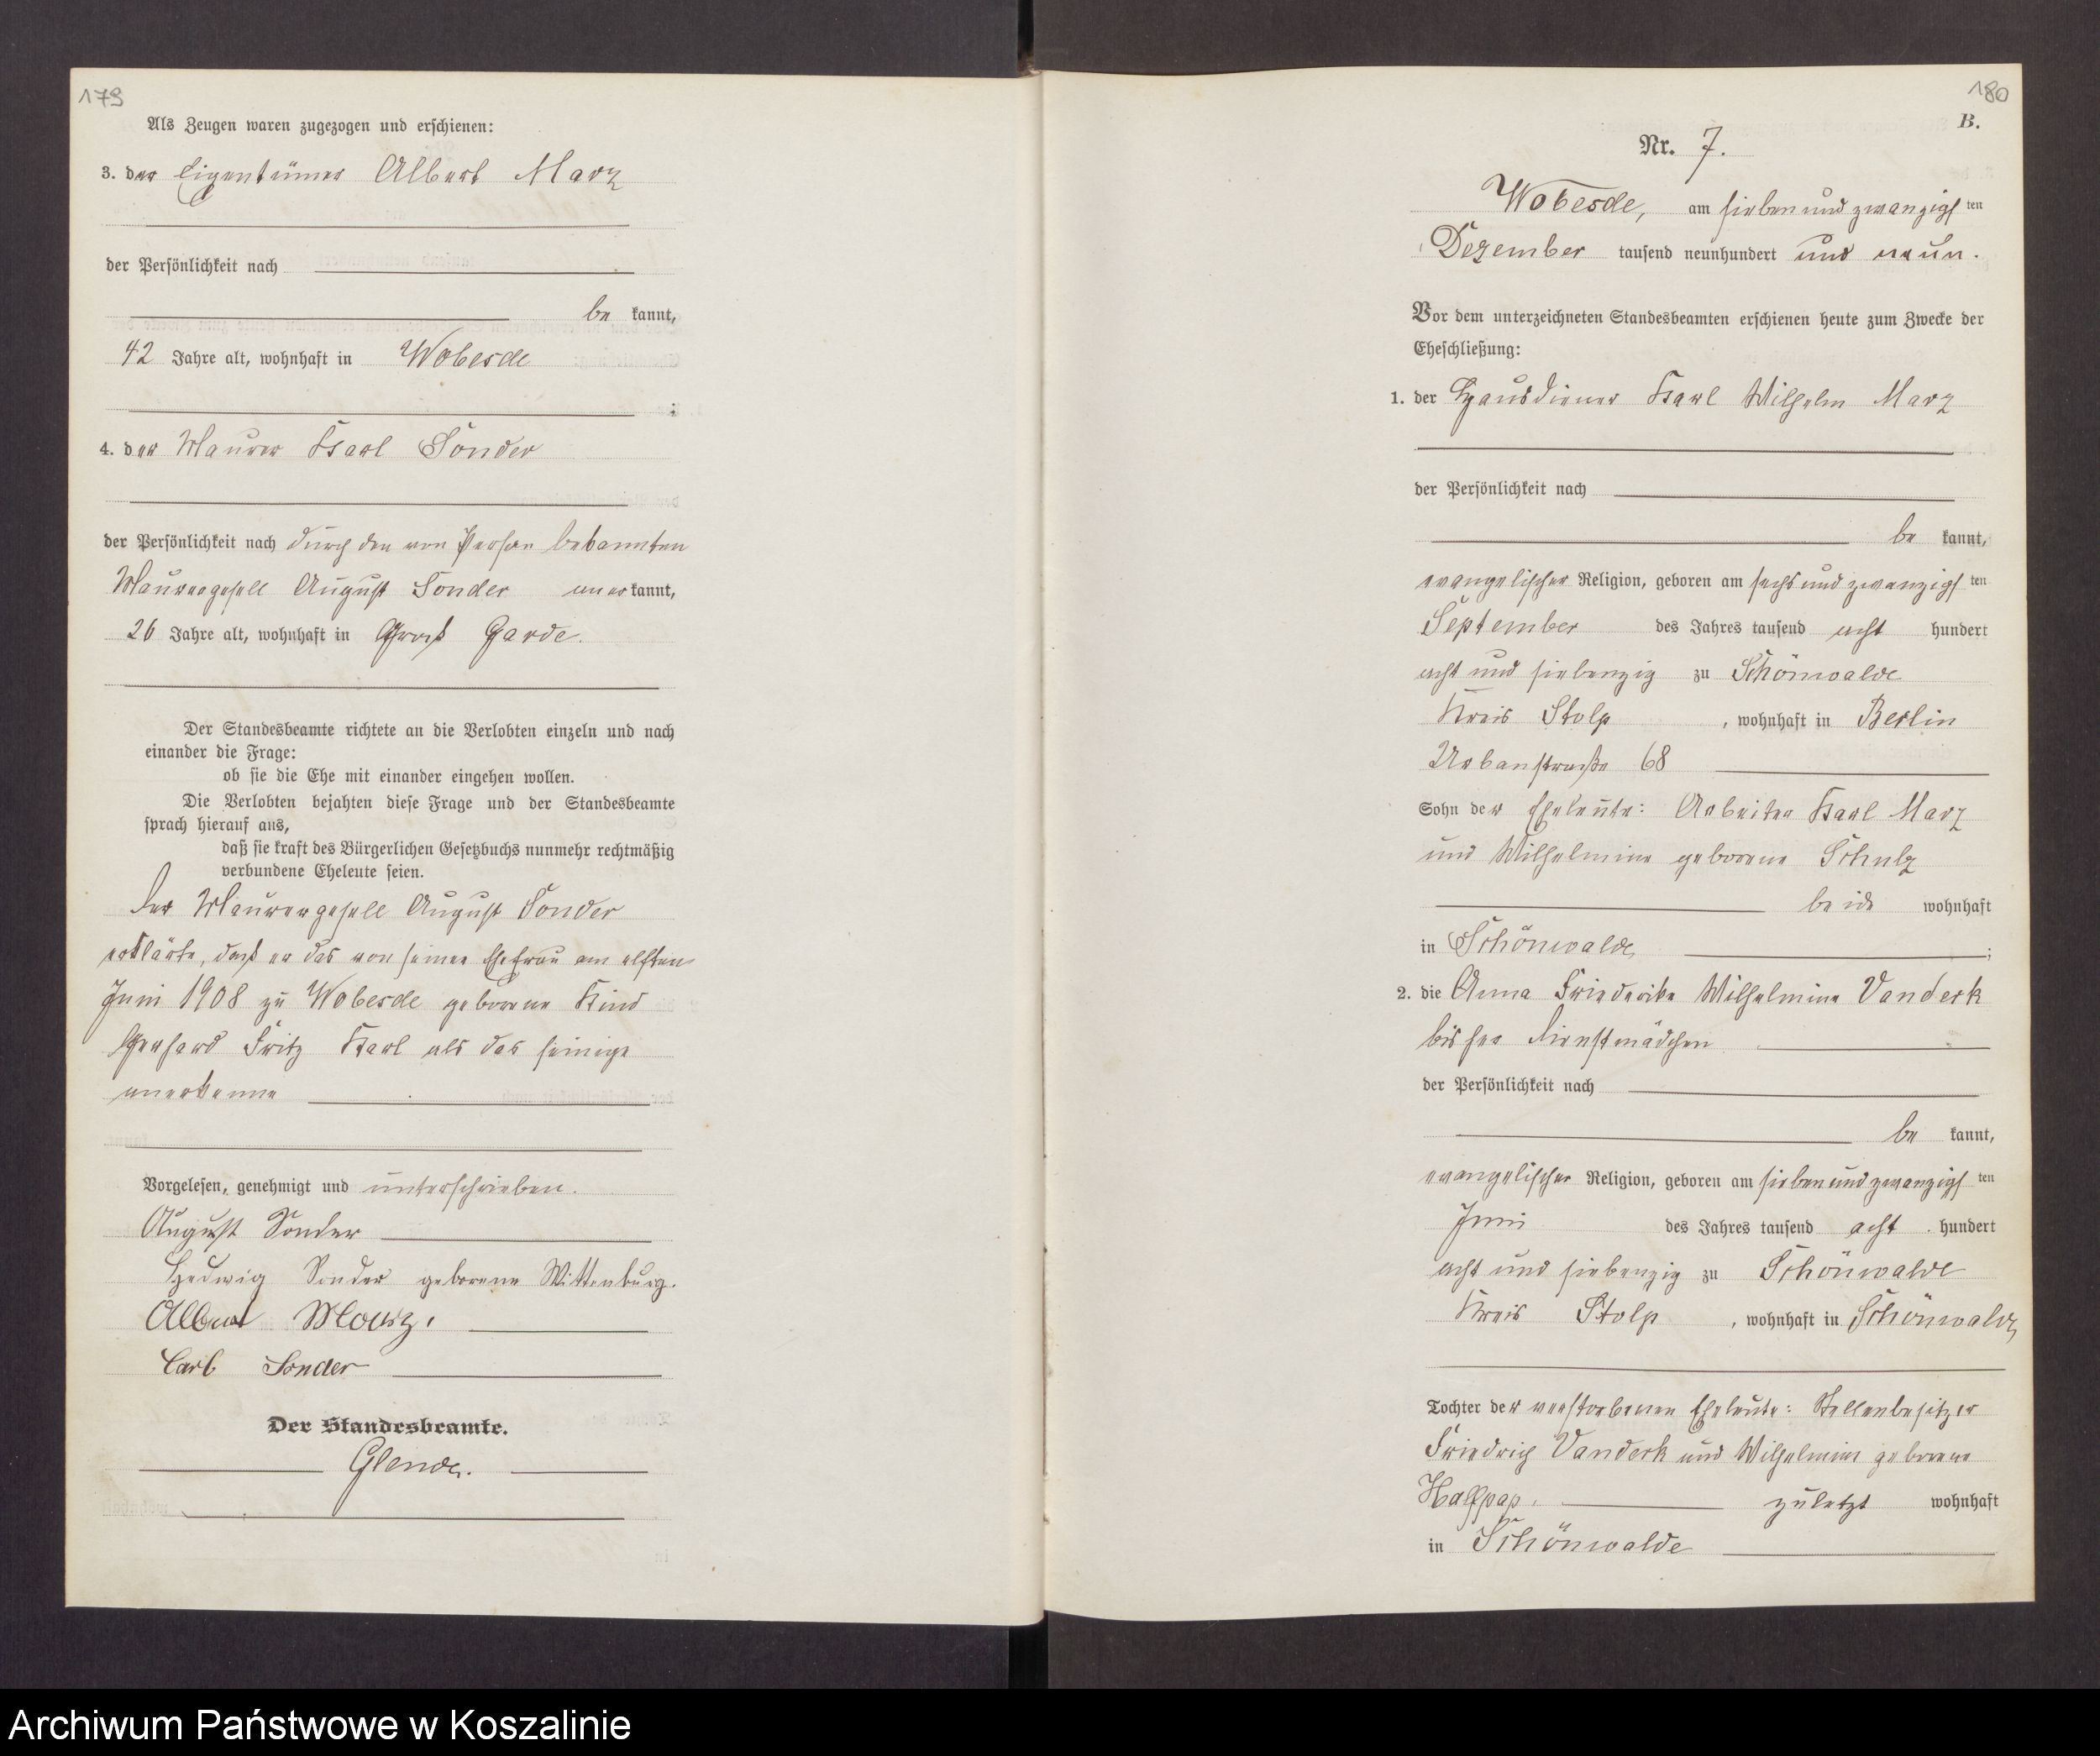 179
Als Zeugen waren zugezogen und erschienen:
3. der Eigentümer Albert Marz
der Persönlichkeit nach
be kannt,
42 Jahre alt, wohnhaft in Wobesde
;
4. der Maurer Karl Sonder
der Persönlichkeit nach durch den von Person bekannten
Maurergesell August Sonder anerkannt,
26 Jahre alt, wohnhaft in Groß Garde.
Der Standesbeamte richtete an die Verlobten einzeln und nach
einander die Frage:
ob sie die Ehe mit einander eingehen wollen.
Die Verlobten bejahten diese Frage und der Standesbeamte
sprach hierauf aus,
daß sie kraft des Bürgerlichen Gesetzbuchs nunmehr rechtmäßig
verbundene Eheleute seien.
Der Maurergeselle August Sonder
erklärte, daß er das von seiner Ehefrau am elften
Juni 1908 zu Wobesde geborene Kind
Gerhard Fritz Karl als das seinige
anerkenne
Vorgelesen, genehmigt und unterschrieben.
August Sonder
Hedwig Sonder geborene Wittenburg.
Albert Marz.
Carl Sonder
Der Standesbeamte.
Glende.
180
B.
Nr. 7.
Wobesde, am sieben und zwanzigsten
Dezember tausend neunhundert und neun.
Vor dem unterzeichneten Standesbeamten erschienen heute zum Zwecke der
Eheschließung:
1. der Hausdiener Karl Wilhelm Marz
der Persönlichkeit nach
be kannt,
evangelischer Religion, geboren am sechs und zwanzigsten
September des Jahres tausend acht hundert
acht und siebenzig zu Schönwalde
Kreis Stolp, wohnhaft in Berlin
Urbanstraße 68
Sohn der Eheleute: Arbeiter Karl Marz
und Wilhelmine geborene Schulz
beide wohnhaft
in Schönwalde;
2. die Anna Friederike Wilhelmine Vanderk
bisher Dienstmädchen
der Persönlichkeit nach
be kannt,
evangelischer Religion, geboren am sieben und zwanzigsten
Juni des Jahres tausend acht hundert
acht und siebenzig zu Schönwalde
Kreis Stolp, wohnhaft in Schönwalde
Tochter der verstorbenen Eheleute: Stellenbesitzer
Friedrich Vanderk und Wilhelmine geborene
Halfpap, zuletzt wohnhaft
in Schönwalde
Archiwum Państwowe w Koszalinie